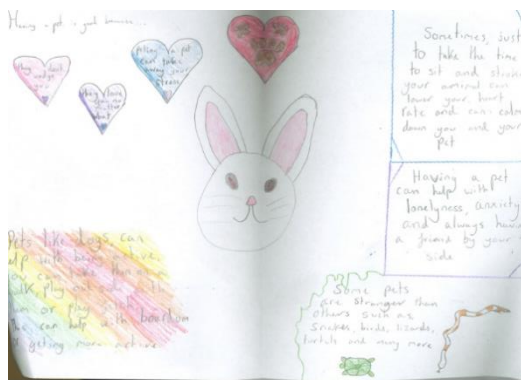 Having a pet is good because...
they don't judge you
they love you no matter what
petting a pet can take away your stress
Sometimes, just
to take the time
to sit and stroke
your animal can
lower your hart
rate and can calm
down you and your
pet
Having a pet
can help with
lonelyness, anxiety
and always have
a friend by your
side
Pets like dogs, can
help with being active,
you can take them on a
walk play outside with
them or play catch.
can help with boardom
geting more active.
Some pets
are stranger than
others such as
snakes, birds, lizards,
turtols and many more